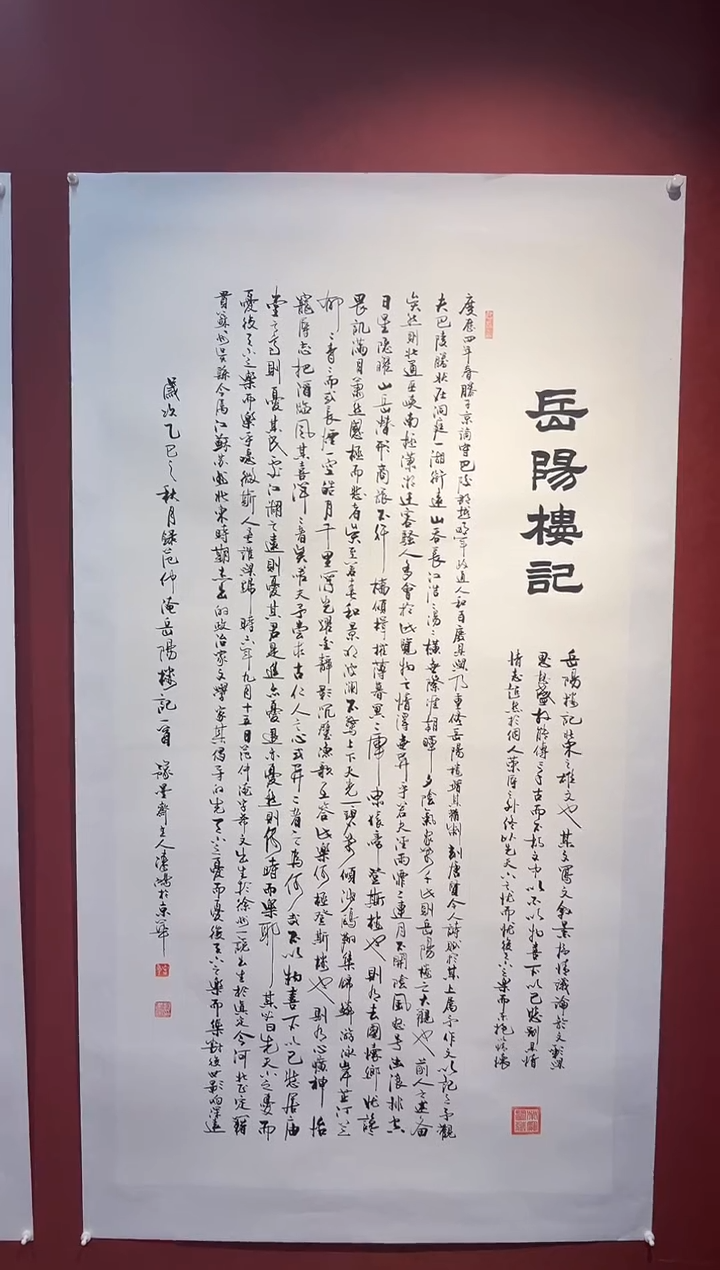 岳陽樓記
岳陽樓記北宋之雄文也其文寫文敘景抒情議論於文彩深
思想勝傳千古而不朽文中以不以物喜不以己悲别具情
情志超然於個人榮辱之外终以先天下之忧而忧後天下之樂而樂抱此懷
慶曆四年春滕子京謫守巴陵郡越明年政通人和百廢具興乃重修岳陽樓增其舊制刻唐賢今人詩賦於其上屬予作文以記之予觀
夫巴陵勝狀在洞庭一湖銜遠山吞長江浩々湯々橫無際涯朝暉夕陰氣象萬千此則岳陽樓之大觀也前人之述備
矣然則北通巫峽南極瀟湘迁客騷人多會於此覽物之情得無異乎若夫淫雨霏々連月不開陰風怒號濁浪排空
日星隱曜山岳潛形商旅不行檣傾楫摧薄暮冥々虎嘯猿啼登斯樓也則有去國懷鄉憂讒
畏譏滿目蕭然感極而悲者矣至若春和景明波瀾不驚上下天光一碧萬頃沙鷗翔集錦鱗游泳岸芷汀蘭
郁々青々而或長煙一空皓月千里浮光躍金靜影沉璧漁歌互答此樂何極登斯樓也則有心曠神怡
寵辱忘把酒臨風其喜洋々者矣嗟夫予嘗求古仁人之心或異二者之為何哉不以物喜不以己悲居廟
堂之高則憂其民處江湖之遠則憂其君是進亦憂退亦憂然則何時而樂耶其必曰先天下之憂而
憂後天下之樂而樂乎噫微斯人吾誰與歸時六年九月十五日范仲淹字希文出生於徐州一說出生於真定今河北正定籍
貫蘇州吳縣今屬江蘇蘇州北宋時期著名的政治家文學家其倡導的先天下之憂而憂後天下之樂而樂對後世影响深遠
歲次乙巳之秋月錄范仲淹岳陽樓記一首 墨齋主人潘鴻於京華